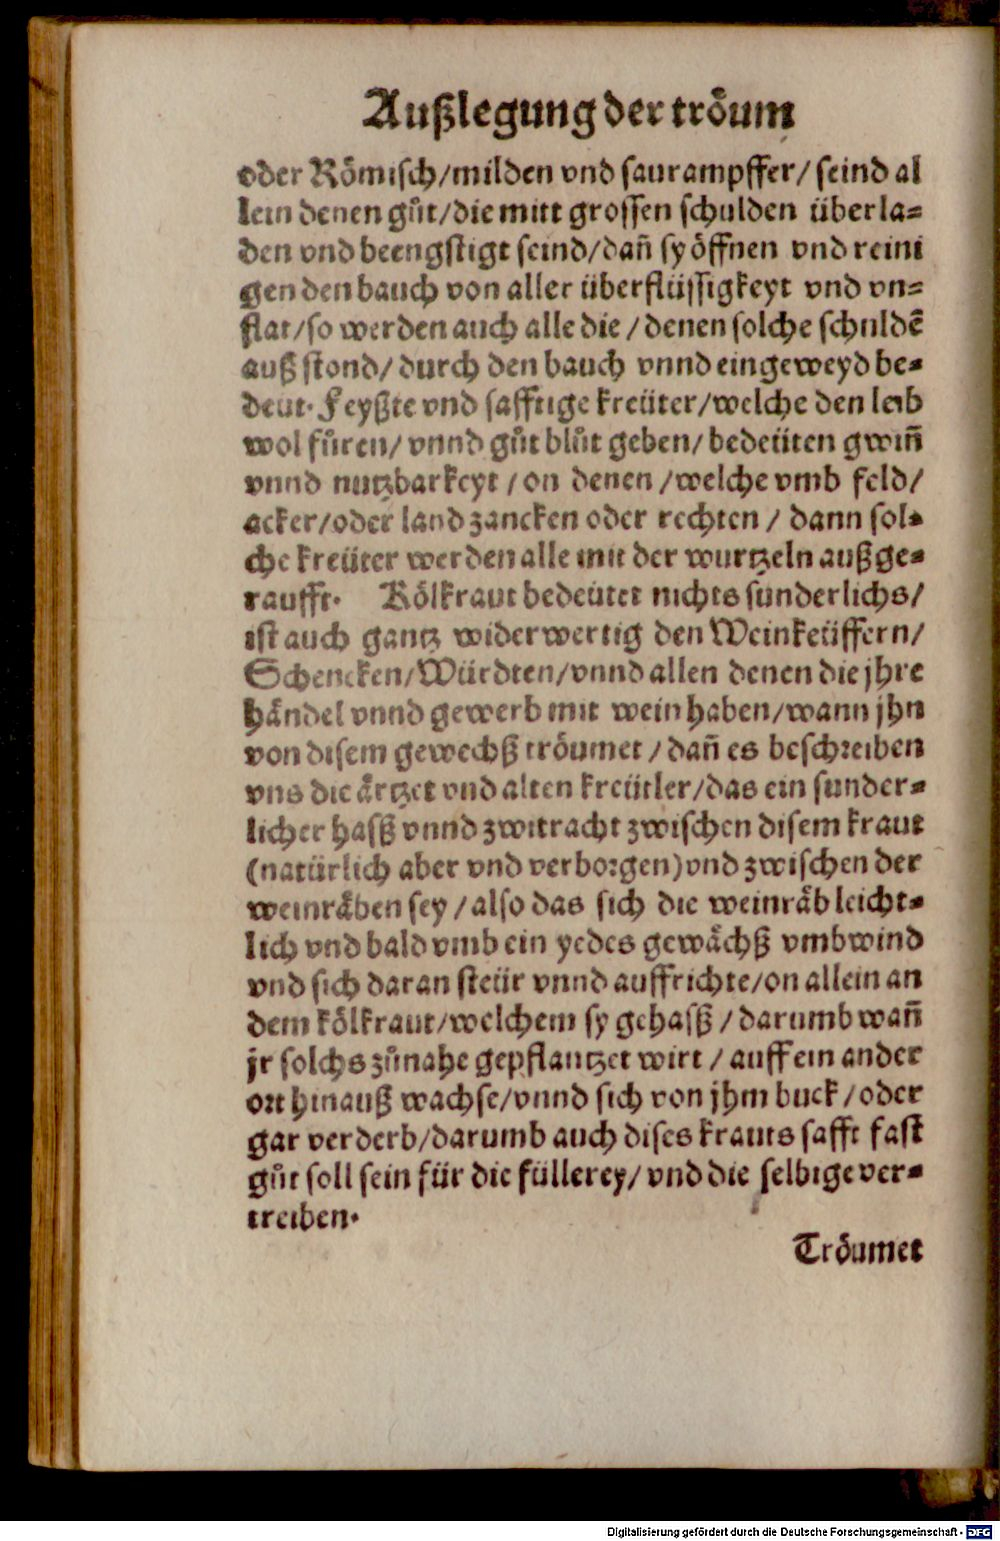 Außlegung der troͤum
oder Roͤmisch/milden vnd saurampffer/ seind al
lein denen guͦt/die mitt grossen schulden überla=
den vnd beengstigt seind/dañ sy oͤffnen vnd reini
gen den bauch von aller überflüssigkeyt vnd vn=
flat/so werden auch alle die / denen solche schuldẽ
auß stond/ durch den bauch vnnd eingeweyd be=
deut. Feyßte vnd safftige kreüter/welche den leib
wol fuͤren/ vnnd guͦt bluͦt geben/ bedeüten gwiñ
vnnd nutzbarkeyt / on denen /welche vmb feld/
acker/oder land zancken oder rechten / dann sol=
che kreüter werden alle mit der wurtzeln außge=
raufft. Koͤlkraut bedeütet nichts sunderlichs/
ist auch gantz widerwertig den Weinkeüffern/
Schencken/Würdten/vnnd allen denen die jhre
haͤndel vnnd gewerb mit wein haben/wann jhn
von disem gewechß troͤumet / dañ es beschreiben
vns die aͤrtzet vnd alten kreütler/das ein sunder=
licher hasß vnnd zwitracht zwischen disem kraut
(natürlich aber vnd verborgen)vnd zwischen der
weinraͤben sey / also das sich die weinraͤb leicht=
lich vnd bald vmb ein yedes gewaͤchß vmbwind
vnd sich daran steür vnnd auffrichte/on allein an
dem koͤlkraut/welchem sy gehasß / darumb wañ
jr solchs zuͦnahe gepflantzet wirt / auff ein ander
ort hinauß wachse/vnnd sich von jhm buck / oder
gar verderb/darumb auch dises krauts safft fast
guͦt soll sein für die füllerey/ vnd die selbige ver=
treiben.
Troͤumet
Digitalisierung gefördert durch die Deutsche Forschungsgemeinschaft - DFG